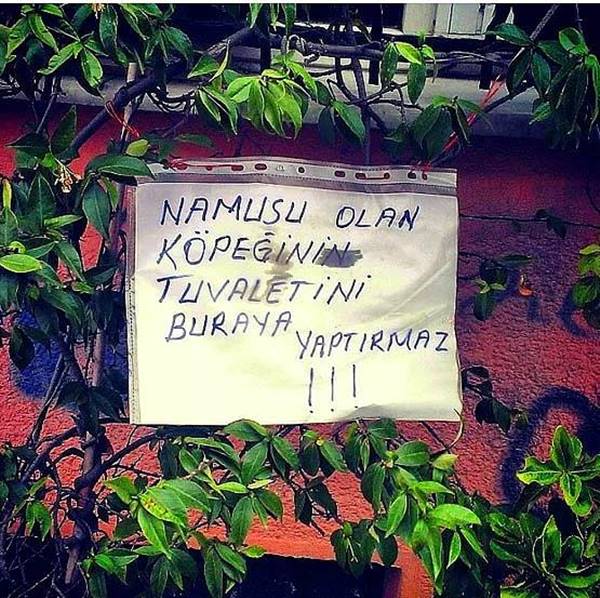 NAMUSU OLAN
KÖPEĞİNİN
TUVALETİNİ
BURAYA YAPTIRMAZ
!!!